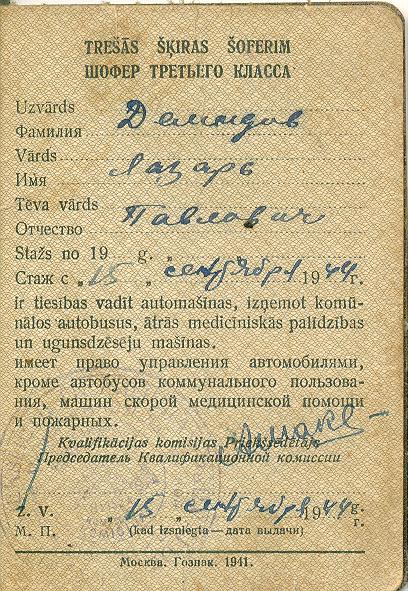 TREŠĀS ŠĶIRAS ŠOFERIM
ШОФЕР ТРЕТЬЕГО КЛАССА
Uzvārds
Фамилия Демидов
Vārds
Имя Лазарь
Tēva vārds
Отчество Павлович
Stažs no 19 g. „
Стаж с „15„ сентября 1944 г.
ir tiesības vadīt automašinas, izņemot komū-
nālos autobusus, ātrās mediciniskās palīdzības
un ugunsdzēsēju mašinas.
имеет право управления автомобилями,
кроме автобусов коммунального пользова-
ния, машин скорой медицинской помощи
и пожарных.
Kvalifikācijas komisijas Priekšsēdētājs
Председатель Квалификационной комиссии
Z. V. „15„ сентября 1944 g.
М. П. (kad izsniegta—дата выдачи) г.
Москва. Гознак. 1941.